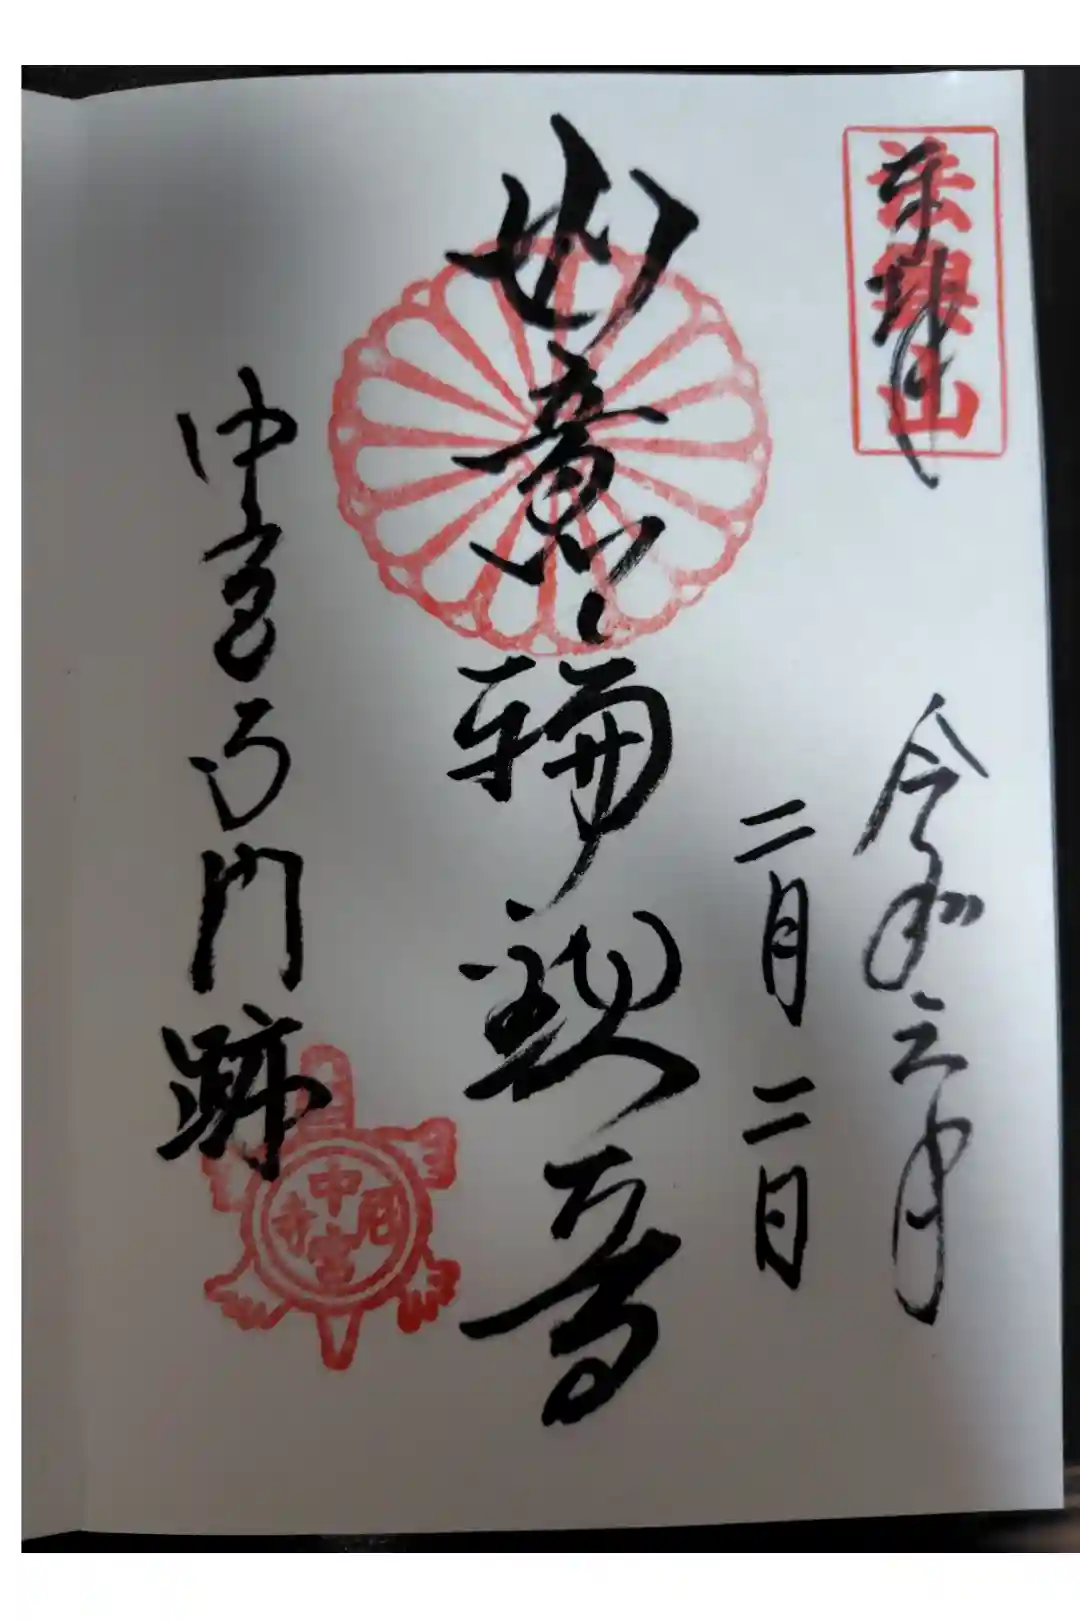 奉拝
法興山
令和六年
二月二日
如意輪観音
中宮寺門跡
中宮尼寺